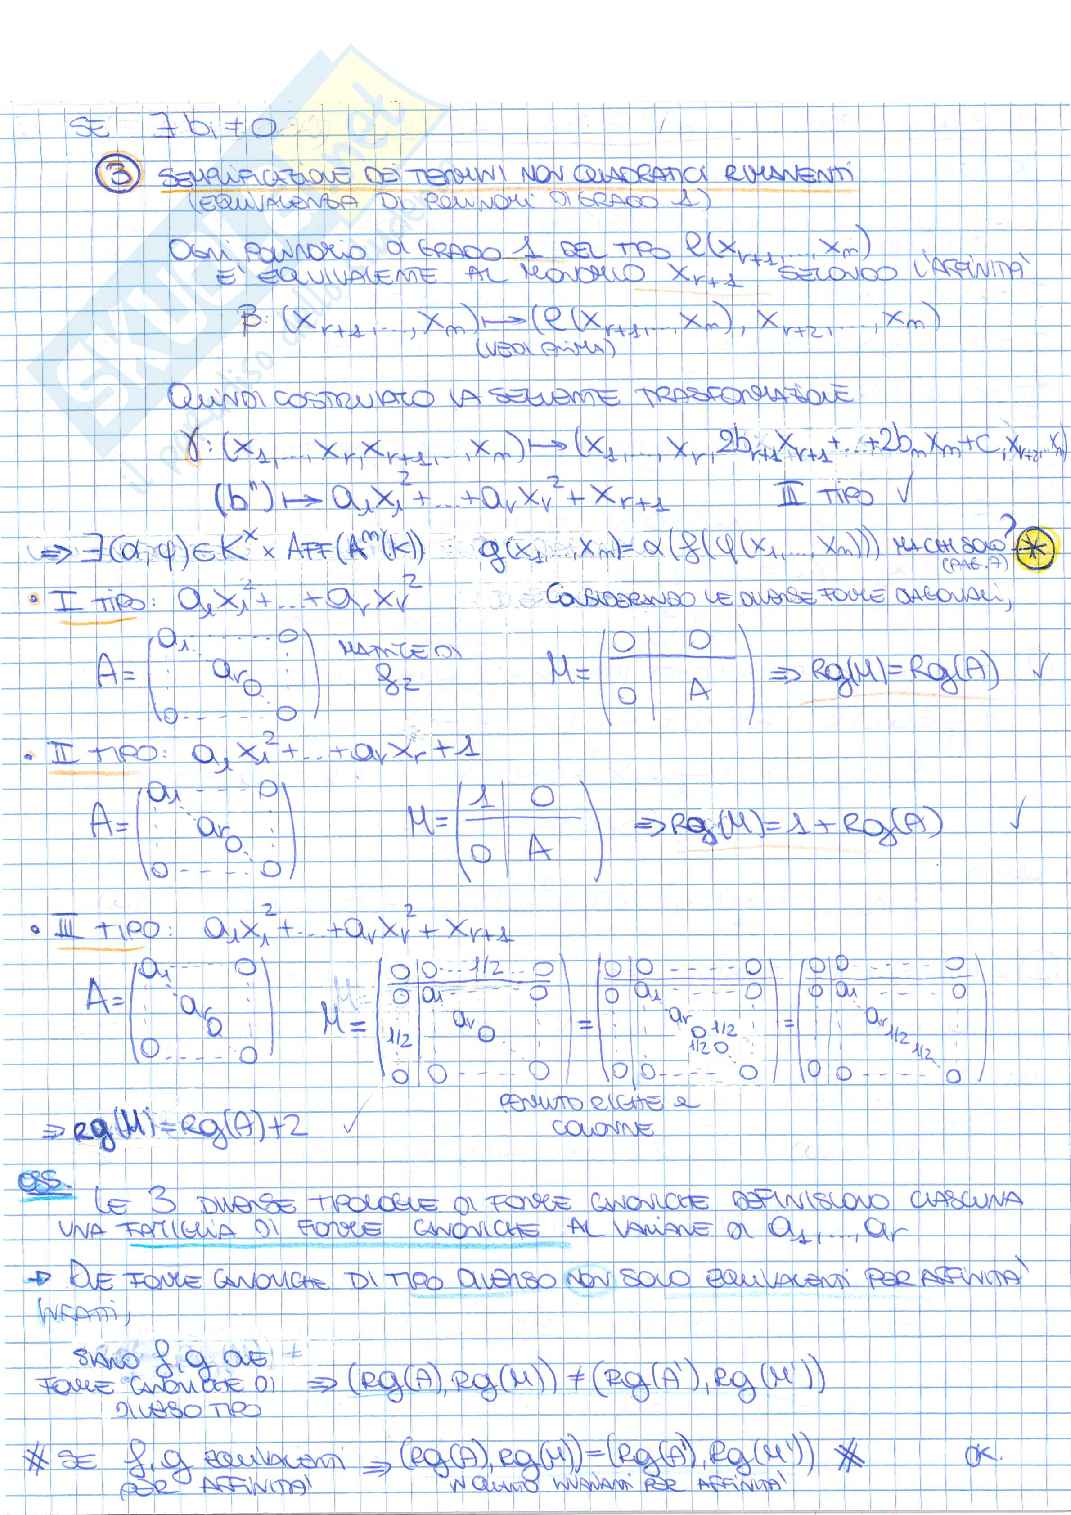 SE ∃ bᵢ ≠ 0
③ SEMPLIFICAZIONE DEI TERMINI NON QUADRATICI RIMANENTI
(EQUIVALENZA DI POLINOMI DI GRADO 1)
OGNI POLINOMIO DI GRADO 1 DEL TIPO l(x_{r+1},...,x_m)
E' EQUIVALENTE AL MONOMIO x_{r+1} SECONDO L'AFFINITA'
β: (x_{r+1},...,x_m) ↦ (l(x_{r+1},...,x_m), x_{r+2},...,x_m)
(VEDI PRIMA)
QUINDI COSTRUIAMO LA SEGUENTE TRASFORMAZIONE
γ: (x₁,...,x_r,x_{r+1},...,x_m) ↦ (x₁,...,x_r,2b_{r+1}x_{r+1}+...+2b_m x_m+c,x_{r+2},..x_m)
(b") ↦ a₁x₁²+...+a_r x_r²+x_{r+1} III TIPO ✓
⇒ ∃(α,φ) ∈ K^× × AFF(A^m(K)) g(x₁,...,x_m) = α(f(φ(x₁,...,x_m))) MA CHI SONO? *
(PAG. 7)
• I TIPO: a₁x₁²+...+a_r x_r² CONSIDERANDO LE DIVERSE FORME DIAGONALI,
A = (a₁ --- 0 a_r 0 0 --- 0) MATICE DI f₂ M = (0 | 0 0 | A) ⇒ Rg(M)=Rg(A) ✓
• II TIPO: a₁x₁²+...+a_r x_r+1
A = (a₁ --- 0 a_r 0 0 --- 0) M = (1 | 0 0 | A) ⇒ Rg(M)=1+Rg(A) ✓
• III TIPO: a₁x₁²+...+a_r x_r²+x_{r+1}
A = (a₁ --- 0 a_r 0 0 --- 0) M = (0 | 0...1/2..0 0 | a₁ --- 0 1/2 | a_r 0 0 | 0 --- 0) = (0 | 0 ---- 0 0 | a₁ --- 0 a_r 0 1/2 1/2 0 0 | 0 --- 0) = (0 | 0 ---- 0 0 | a₁ --- 0 a_r 1/2 1/2 0 | 0 --- 0)
PERMUTO RIGHE e
COLONNE
⇒ Rg(M)=Rg(A)+2 ✓
OSS.
LE 3 DIVERSE TIPOLOGIE DI FORME CANONICHE DEFINISCONO CIASCUNA
UNA FAMIGLIA DI FORME CANONICHE AL VARIARE DI a₁,...,a_r
→ DUE FORME CANONICHE DI TIPO DIVERSO NON SONO EQUIVALENTI PER AFFINITA'
INFATTI,
SIANO f,g DUE ≠
FORME CANONICHE DI ⇒ (Rg(A),Rg(M)) ≠ (Rg(A'),Rg(M'))
DIVERSO TIPO
* SE f,g EQUIVALENTI ⇒ (Rg(A),Rg(M))=(Rg(A'),Rg(M')) * OK.
PER AFFINITA' IN QUANTO INVARIANTI PER AFFINITA'